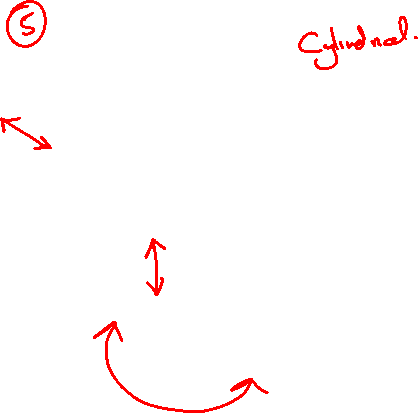 5
Cylindrical.